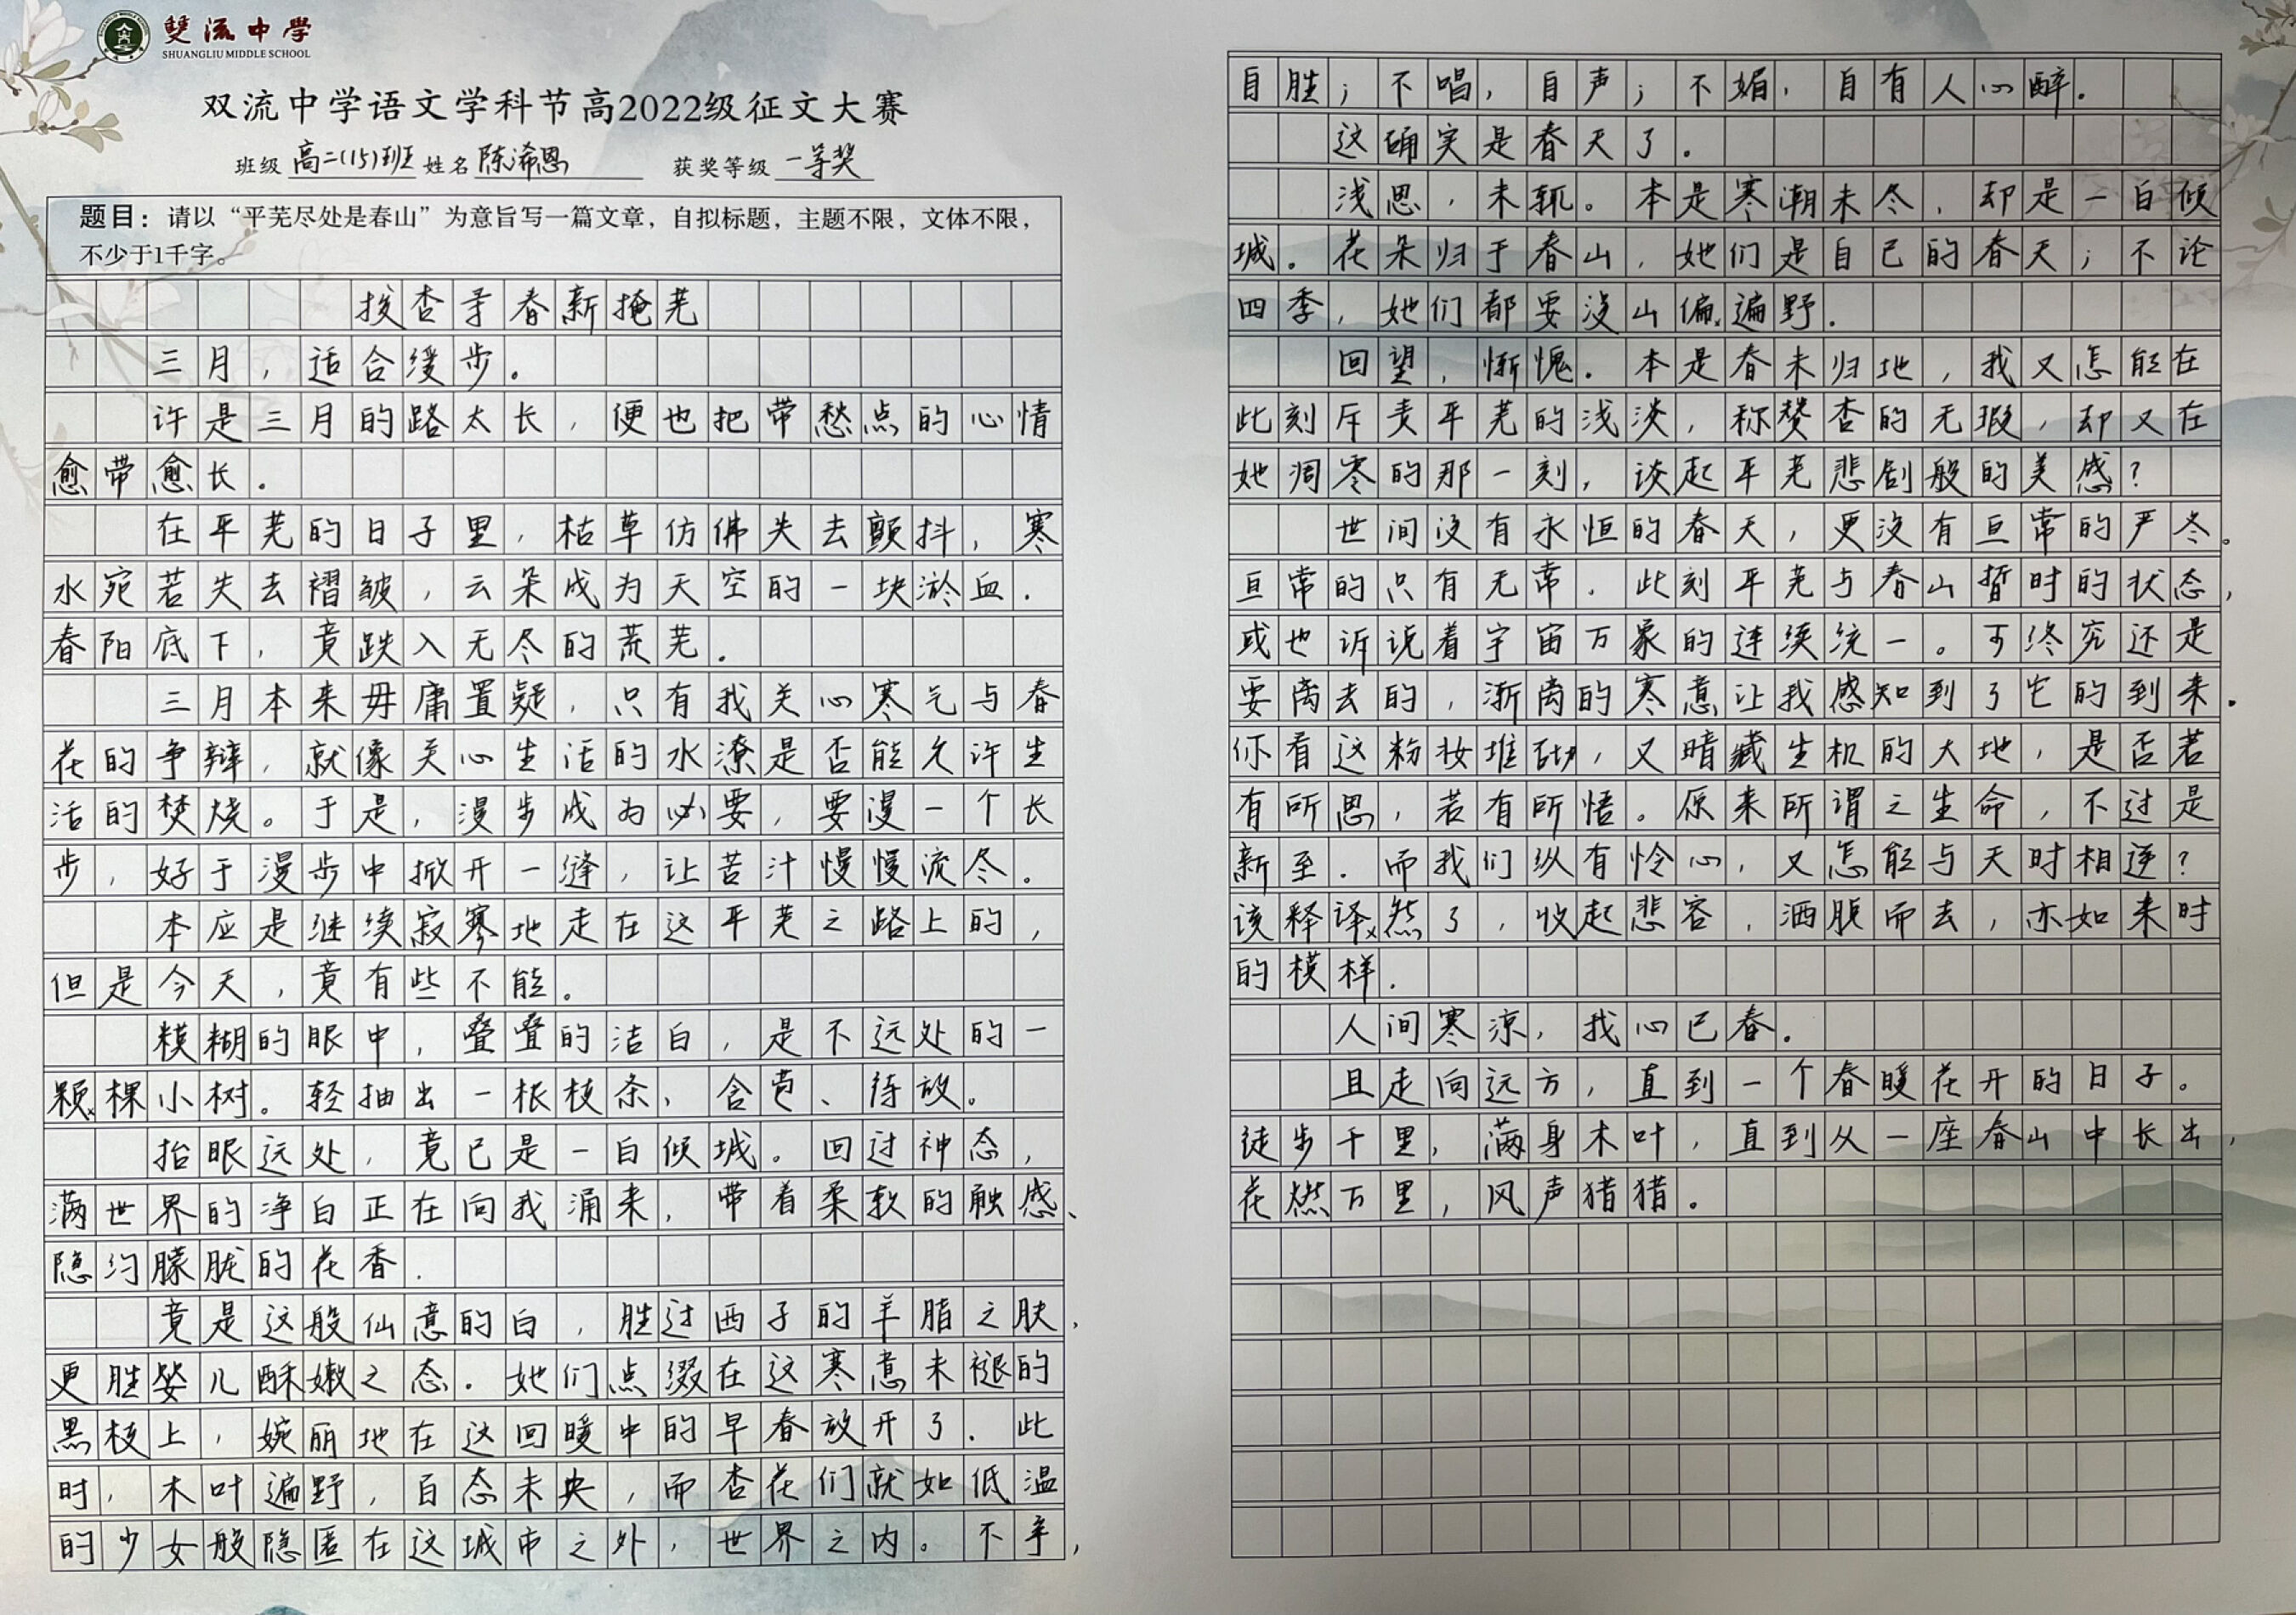 雙流中學
SHUANGLIU MIDDLE SCHOOL
双流中学语文学科节高2022级征文大赛
班级 高二(15)班 姓名 陈浠恩 获奖等级 一等奖
题目：请以“平芜尽处是春山”为意旨写一篇文章，自拟标题，主题不限，文体不限，
不少于1千字。
拨杏手春新掩芜
三月，适合缓步。
许是三月的路太长，便也把带愁点的心情
愈带愈长．
在平芜的日子里，枯草仿佛失去颤抖，寒
水宛若失去褶皱，云朵成为天空的一块淤血．
春阳底下，竟跌入无尽的荒芜．
三月本来毋庸置疑，只有我关心寒气与春
花的争辩，就像关心生活的水潦是否能允许生
活的焚烧。于是，漫步成为必要，要漫一个长
步，好于漫步中掀开一缝，让苦汁慢慢流尽。
本应是继续寂寥地走在这平芜之路上的，
但是今天，竟有些不能。
模糊的眼中，叠叠的洁白，是不远处的一
颗棵小树。轻抽出一根枝条、含苞、待放。
抬眼远处，竟已是一白倾城。回过神态，
满世界的净白正在向我涌来，带着柔软的触感、
隐约朦胧的花香．
竟是这般仙意的白，胜过西子的羊脂之肤，
更胜婴儿酥嫩之态．她们点缀在这寒意未褪的
黑枝上，婉丽地在这回暖中的早春放开了．此
时，木叶遍野，百态未央，而杏花们就如低温
的少女般隐匿在这城市之外，世界之内。不争，
自胜；不唱，自声；不媚，自有人心醉．
这确实是春天了．
浅思，未辄。本是寒潮未尽，却是一白倾
城．花朵归于春山，她们是自己的春天；不论
四季，她们都要没山偏遍野．
回望，惭愧．本是春未归地，我又怎能在
此刻斥责平芜的浅淡，称赞杏的无瑕，却又在
她凋零的那一刻，谈起平芜悲剧般的美感？
世间没有永恒的春天，更没有亘常的严冬。
亘常的只有无常．此刻平芜与春山暂时的状态，
或也诉说着宇宙万象的连续统一。可终究还是
要离去的，渐离的寒意让我感知到了它的到来．
你看这粉妆堆砌，又暗藏生机的大地，是否若
有所思，若有所悟。原来所谓之生命，不过是
新至．而我们纵有怜心，又怎能与天时相逆？
该释译然了，收起悲容，洒脱而去，亦如来时
的模样．
人间寒凉，我心已春．
且走向远方，直到一个春暖花开的日子。
徒步千里，满身木叶，直到从一座春山中长出，
花燃万里，风声猎猎。